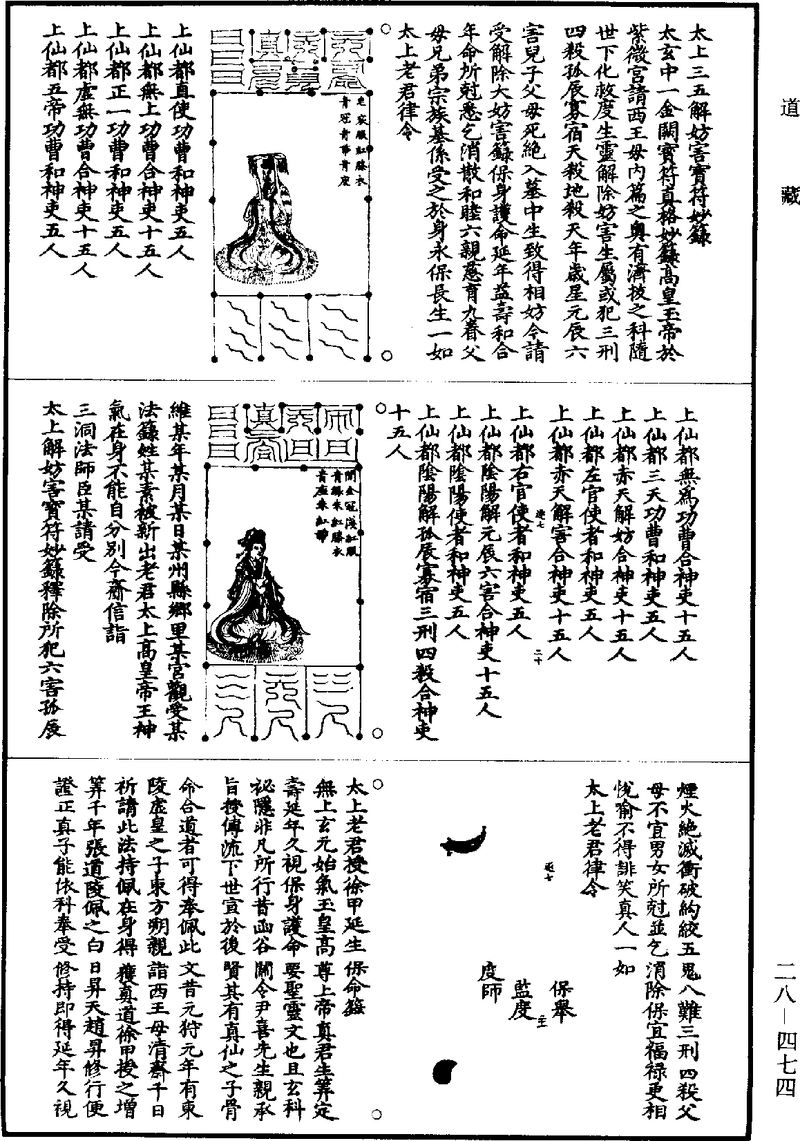 道藏
太上三五解妨害寶符妙籙
太玄中一金闕寶符真格妙籙高皇玉帝於
紫微宮請西王母內篇之奧有濟拔之科隨
世下化救度生靈解除妨害生屬或犯三刑
四殺孤辰寡宿天殺地殺天年歲星元辰六
害兒子父母死絕入墓中生致得相妨今請
受解除大妨害籙保身護命延年益壽和合
年命所尅悉乞消散和睦六親慈育九眷父
母兄弟宗族基係受之於身永保長生一如
太上老君律令
老家服紅藤衣
青冠青華青座
上仙都直使功曹和神吏五人
上仙都無上功曹合神吏十五人
上仙都正一功曹和神吏五人
上仙都虛無功曹合神吏十五人
上仙都五帝功曹和神吏五人
上仙都無為功曹合神吏十五人
上仙都三天功曹和神吏五人
上仙都赤天解妨合神吏十五人
上仙都左官使者和神吏五人
上仙都赤天解害合神吏十五人
上仙都右官使者和神吏五人
上仙都陰陽解元辰六害合神吏十五人
上仙都陰陽使者和神吏五人
上仙都陰陽解孤辰寡宿三刑四殺合神吏
十五人
維某年某月某日某州縣鄉里某宮觀受某
法籙姓某素被新出老君太上高皇帝王神
氣在身不能自分別今齎信詣
三洞法師臣某請受
太上解妨害寶符妙籙釋除所犯六害孤辰
煙火絕滅衝破絇絞五鬼八難三刑四殺父
母不宜男女所尅並乞消除保宜福祿更相
悅喻不得誹笑真人一如
太上老君律令
保舉
監度
度師
太上老君授徐甲延生保命籙
無上玄元始氣玉皇高尊上帝真君生筭定
壽延年久視保身護命要聖靈文也且玄科
祕隱非凡所行昔函谷關令尹喜先生親承
旨授傳流下世宣於後賢其有真仙之子骨
命合道者可得奉佩此文昔元狩元年有東
陵虛皇之子東方朔親詣西王母清齋千日
祈請此法持佩在身得獲真道徐甲授之增
筭千年張道陵佩之白日昇天趙昇修行便
證正真子能依科奉受修持即得延年久視
二八—四七四